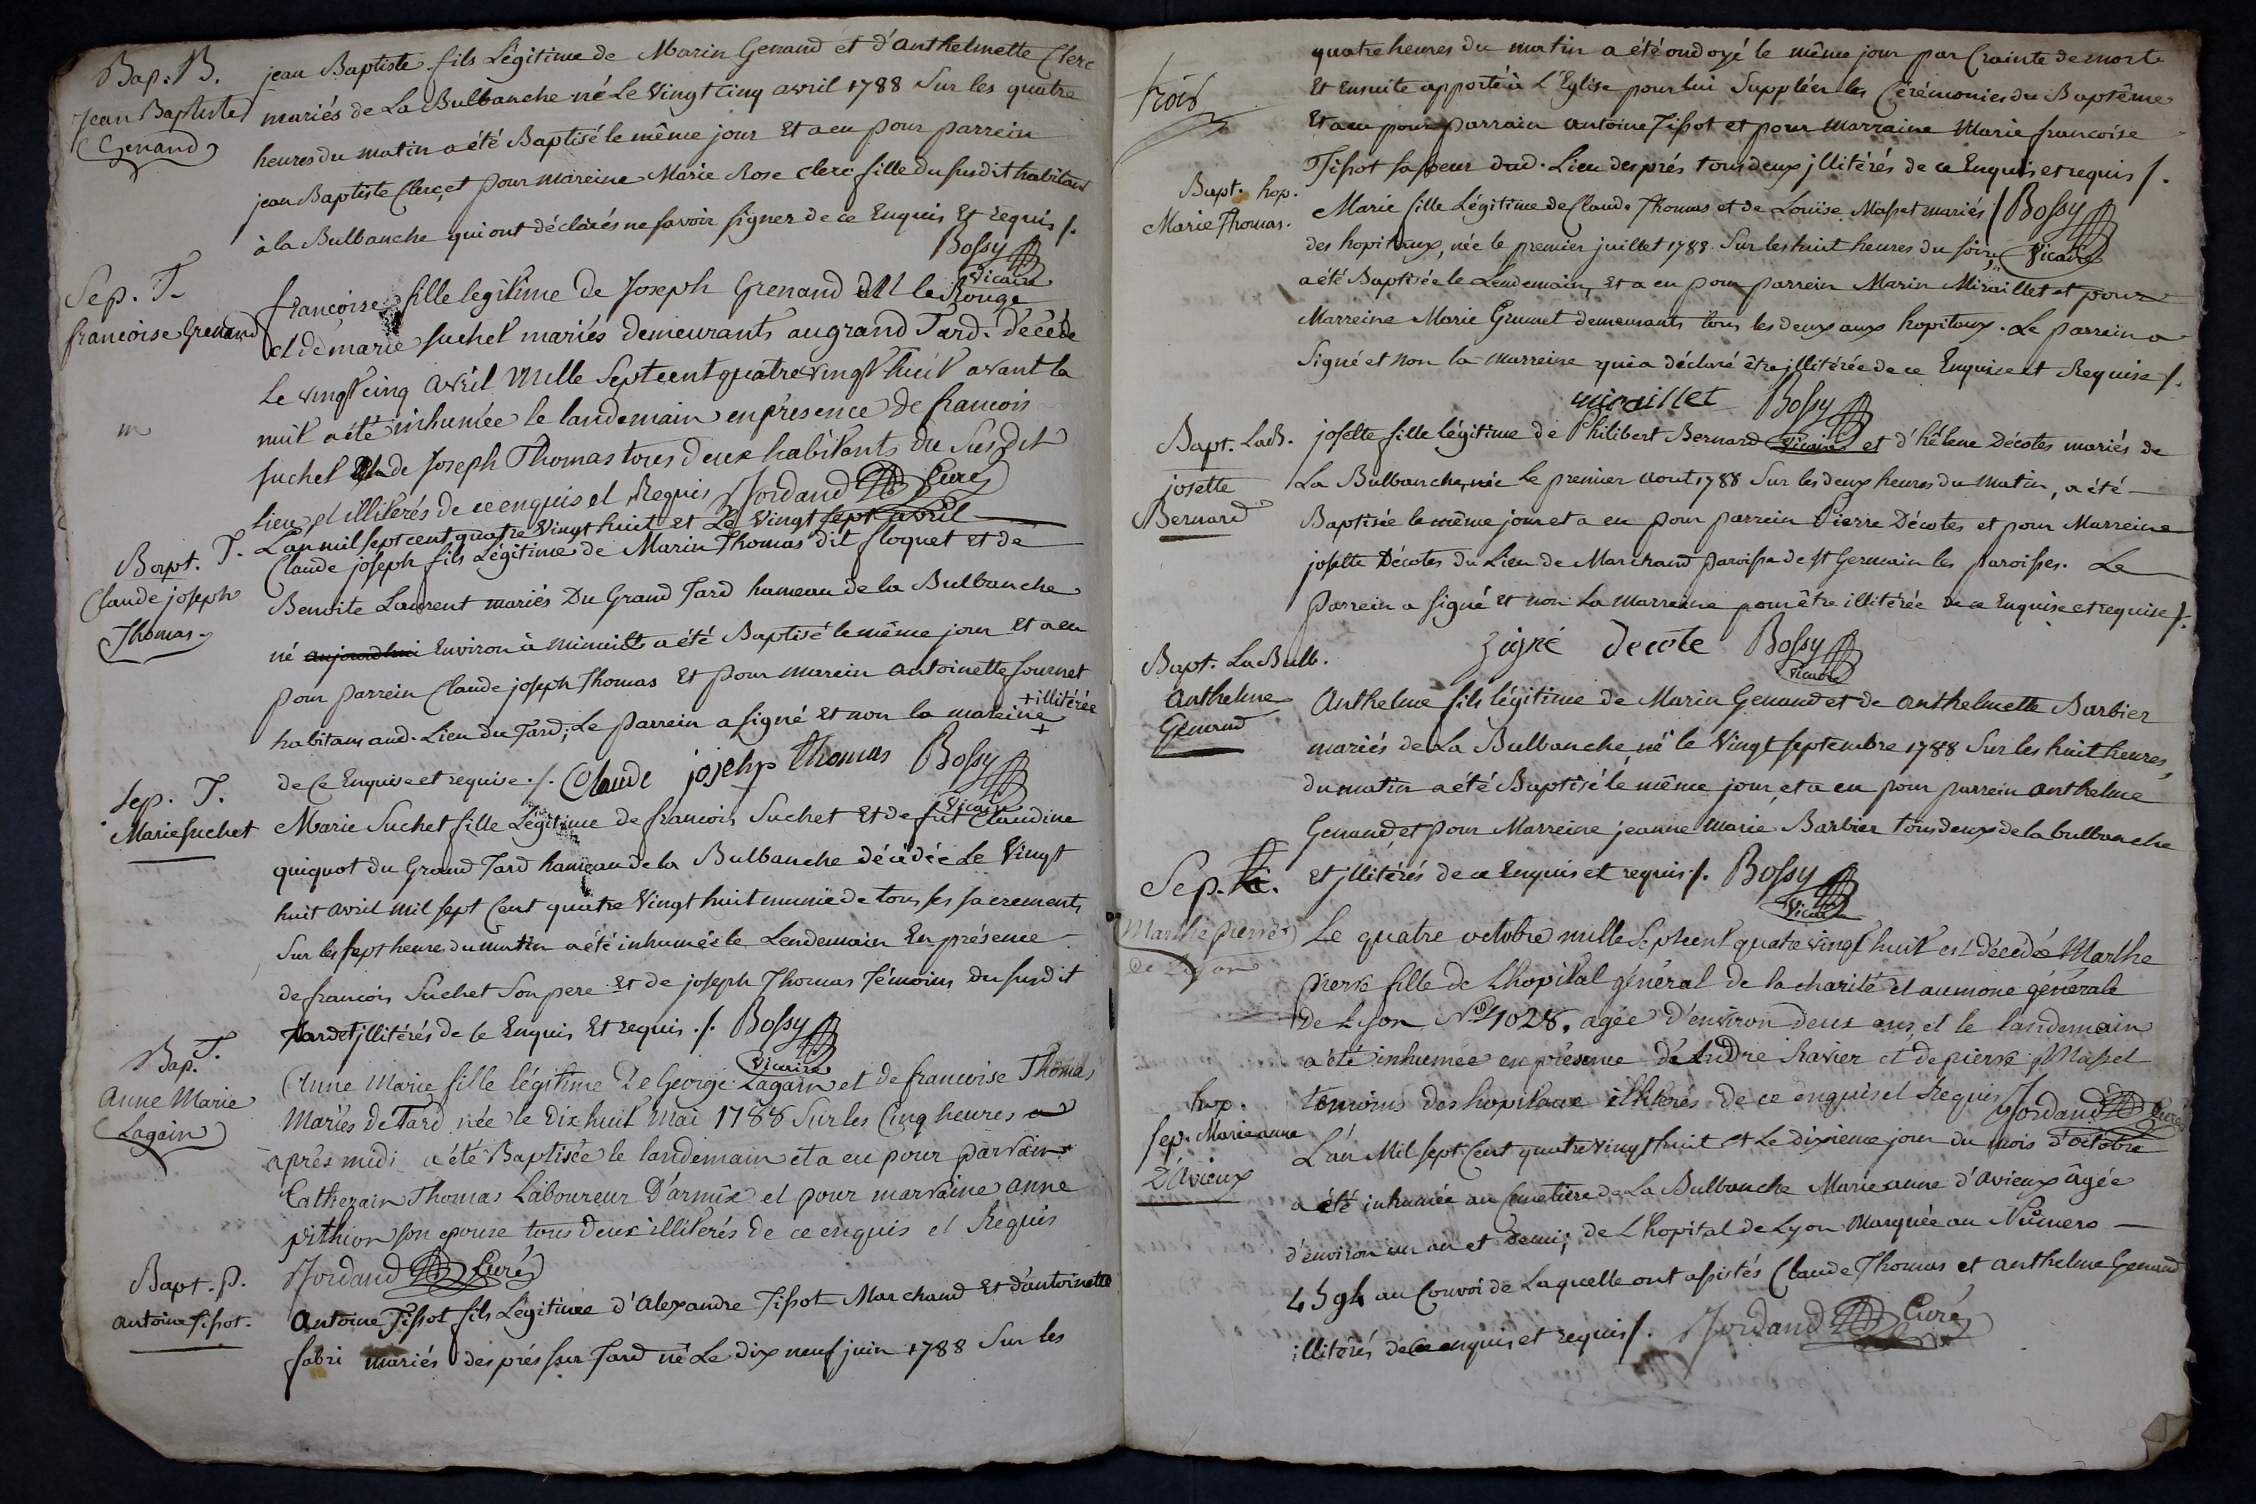 Bap. B.
Jean Baptiste
Genand
jean Baptiste fils Légitime de Marin Genand et d'Anthelmette Clerc
mariés de La Bulbanche né Le Vingt Cinq avril 1788 Sur les quatre
heures du matin a été Baptisé le même jour Et a eu pour parrein
jean Baptiste Clerc, et pour mareine Marie Rose Clerc fille du susdit habitant
à la Bulbanche qui ont déclarés ne savoir signer de ce Enquis Et requis /.
Bossy
Vicaire
Sep. T.
francoise Grenand
francoise fille legitime de Joseph Grenand dit le Rouge
et de marie suchet mariés demeurants au grand Tard. décédé
Le vingt cinq avril Mille Sept cent quatre vingt huit avant la
nuit a été inhumée le landemain en présence de francois
suchet et de Joseph Thomas tous deux habitants du Susdit
lieu et illitérés de ce enquis et Requis Jordand Curé
Bapt. T.
Claude joseph
Thomas.
L'an mil sept cent quatre Vingt huit et Le Vingt sept avril
Claude joseph fils Légitime de Marin Thomas dit floquet et de
Benoite Laurent mariés Du Grand Tard hameau de la Bulbanche
né aujourdhui Environ à minuit a été Baptisé le même jour Et a eu
pour parrein Claude joseph Thomas Et pour marein antoinette fournet
habitans aud. Lieu du Tard; Le parrein a signé Et non la mareine +
+ illitérée
de Ce Enquise et requise. /. Claude josehp thomas Bossy
Vicaire
Sep. T.
Marie suchet
Marie Suchet fille Légitime de francois Suchet Et de fut Claudine
quiquot du Grand Tard hameau de la Bulbanche décédée Le Vingt
huit avril mil sept Cent quatre Vingt huit munie de tous ses sacrements
Sur les sept heure du matin a été inhumée le Lendemain En présence
de francois Suchet Son pere Et de joseph Thomas Témoins du susdit
Tard et jllitérés de Ce Enquis Et requis. /. Bossy
Vicaire
Bap. T.
Anne Marie
Lagain
Anne Marie fille légitime De George Lagain et de francoise Thomas
Mariés de Tard née le Dix huit mai 1788 Sur les Cinq heures
après midi a été Baptisée le landemain et a eu pour parrain
Catherain Thomas Laboureur D'armix et pour marraine anne
pithion son epouse tous deux illiterés de ce enquis et Requis
Jordand Curé
Bapt. p.
antoine Tissot.
Antoine Tissot fils Légitime d'Alexandre Tissot Marchand Et d'antoinette
fabri mariés des prés sur Tard né Le dix neuf juin 1788 Sur les
trois
quatre heures du matin a été ondoyé le même jour par Crainte de mort
Et Ensuite apporté à L'Eglise pour lui Suppléer les Cérémonies du Baptême
Et a eu pour parrain antoine Tissot et pour marraine Marie francoise
Tissot sa soeur dud. Lieu des prés tous deux jllitérés de ce Enquis et requis /.
Bossy
Vicaire
Bapt. hop.
Marie Thomas.
Marie fille Légitime de Claude Thomas et de Louise Masset mariés
des hopitaux, née le premier juillet 1788. Sur les huit heures du soir,
a été Baptisée le Lendemain, Et a eu pour parrein Marin Miraillet et pour
Marreine Marie Grumet demeurants tous les deux aux hopitaux. Le parrein a
Signé et non la marreine qui a déclaré être jllitérée de ce Enquise et Requise /.
miraillet Bossy
Vicaire
Bapt. LaB.
josette
Bernard
josette fille légitime de Philibert Bernard et d'hélene Décotes mariés de
La Bulbanche, née Le premier aout 1788 Sur les deux heures du matin, a été
Baptisée le même jour et a eu pour parrein Pierre Décotes et pour Marreine
josette Décotes du Lieu de Marchand paroisse de St Germain les paroisses. Le
parrein a signé Et non La marreine pour être illitérée de ce Enquise et requise /.
Zigné decote Bossy
Vicaire
Bapt. La Bulb.
Anthelme
Genand
Anthelme fils légitime de Marin Genand et de anthelmette Barbier
mariés de La Bulbanche, né le Vingt septembre 1788 Sur les huit heures,
du matin a été Baptisé le même jour, et a eu pour parrein anthelme
Genand, et pour Marreine jeanne marie Barbier tous deux de la bulbanche
Et jllitérés de ce Enquis et requis /. Bossy
Vicaire
Sep. h.
Marthe pierre
de Lyon
Le quatre octobre mille Sept cent quatre vingt huit est décédée Marthe
pierre fille de Lhopital général de la charité et aumone générale
de Lyon No 4028, agée d'environ deux ans, et le landemain
a été inhumée en présence de André Ravier et de pierre Masset
temoins des hopitaux illiterés de ce enquis et Requis Jordand Curé
hop.
Sep. Marieanne
D'Avieux
L'an Mil sept Cent quatre Vingt huit et Le dixieme jour du mois d'octobre
a été inhumée au Cimetière de La Bulbanche Marieanne d'Avieux âgée
d'environ un an et demi; de L'hopital de Lyon Marquée au Numero
4594 au Convoi de Laquelle ont assistés Claude Thomas et anthelme Genand
illitérés de Ce enquis et requis /. Jordand Curé